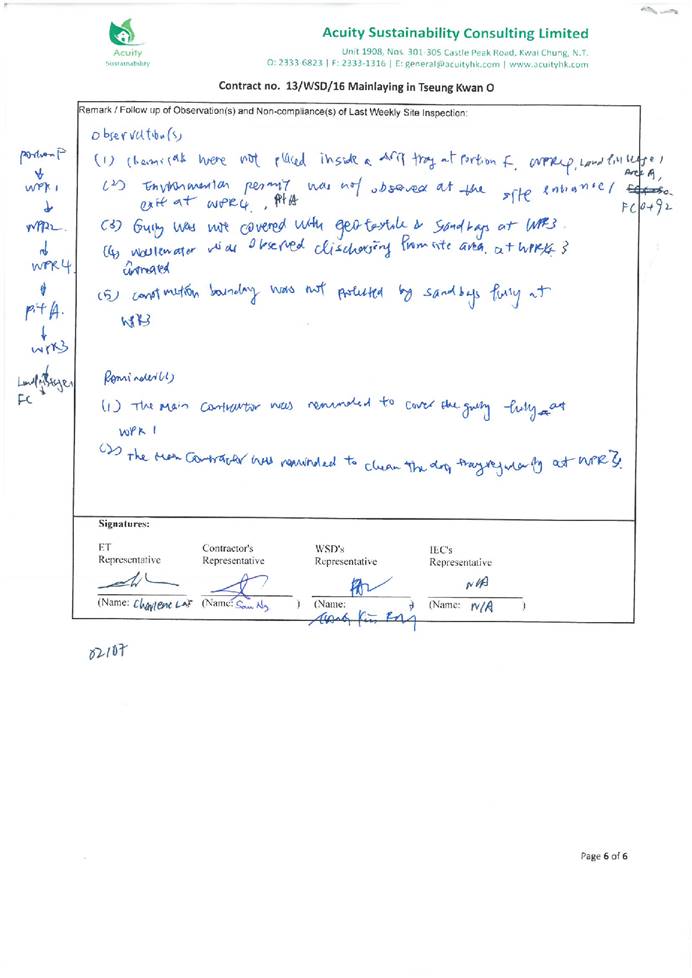 Acuity
Sustainability
Acuity Sustainability Consulting Limited
Unit 1908, Nos. 301-305 Castle Peak Road, Kwai Chung, N.T.
O: 2333-6823 | F: 2333-1316 | E: general@acuityhk.com | www.acuityhk.com
Contract no. 13/WSD/16 Mainlaying in Tseung Kwan O
Remark / Follow up of Observation(s) and Non-compliance(s) of Last Weekly Site Inspection:
Observation(s)
(1) Chemicals were not placed inside a drip tray at Portion F, WPR4,
Area A,
(2) Environmental permit was not observed at the site entrance /
exit at WPR4, Pit A
FC0+92
(3) Gully was not covered with geotextile & sandbags at WPR3.
(4) wastewater was observed discharging from site area at WPR 3
(5) construction boundary was not protected by sandbags fully at
WPR3
Reminder(s)
(1) The Main Contractor was reminded to cover the gully fully at
WPR 1
(2) The Main Contractor was reminded to clean the drip tray regularly at WPR3.
Portion F
WPR1
WPR2
WPR4
Pit A.
WPR3
FC
Signatures:
ET
Representative
Contractor's
Representative
WSD's
Representative
IEC's
Representative
N/A
(Name: Charlene Lai
(Name: Sam Ng )
(Name: )
(Name: N/A )
02/07
Page 6 of 6